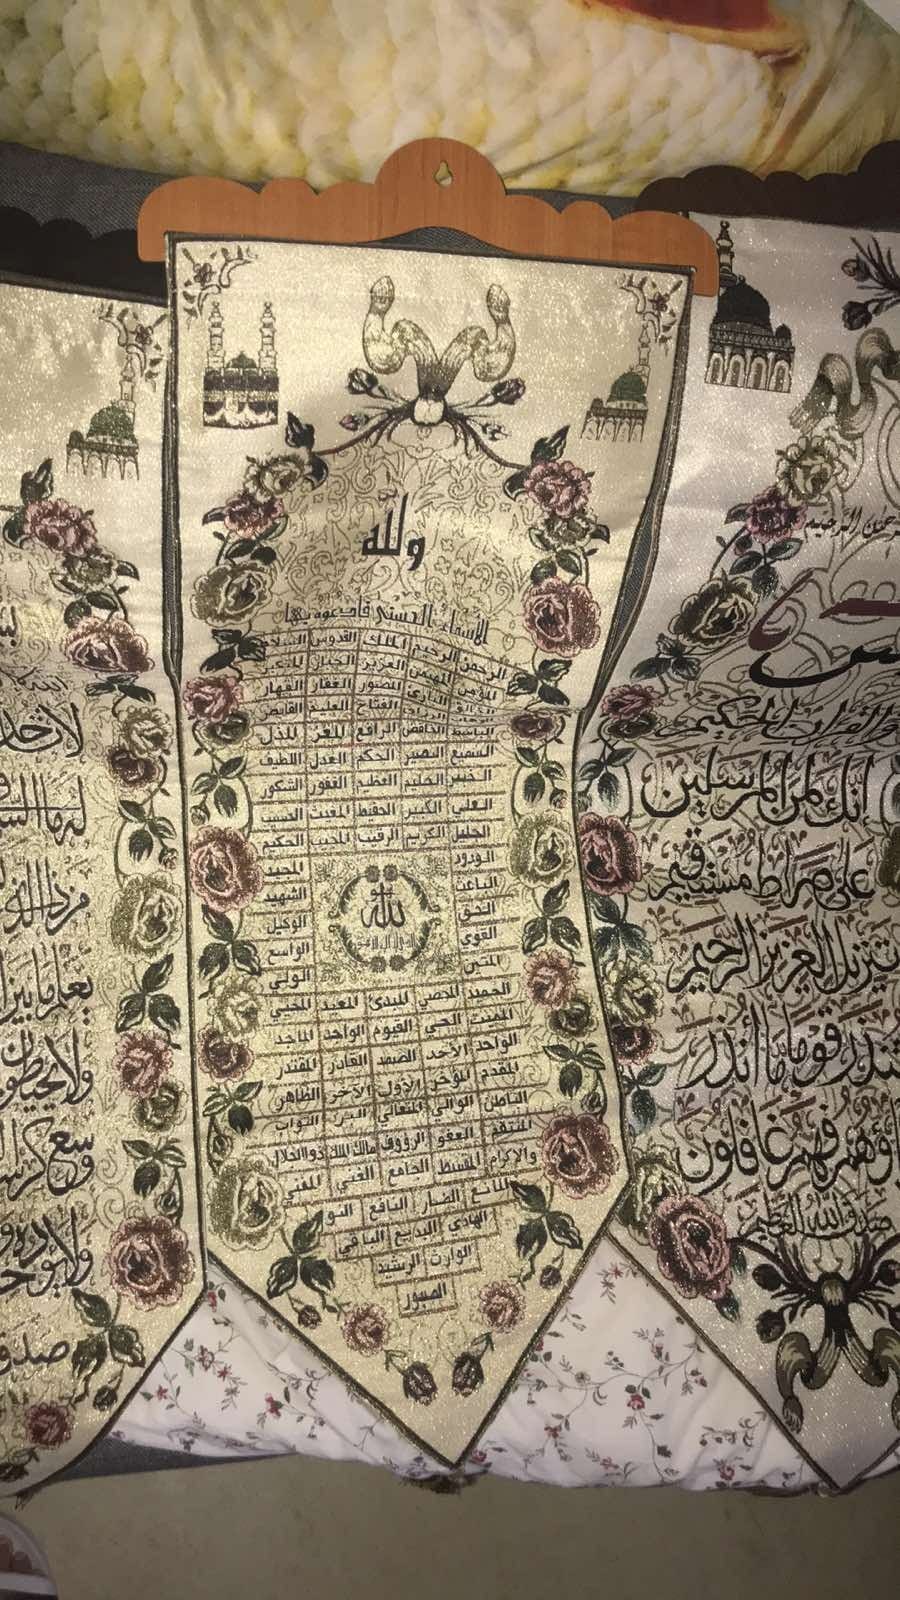 ولله
الأسماء الحسنى فادعوه بها
الرحمن الرحيم الملك القدوس السلام
المؤمن المهيمن العزيز الجبار المتكبر
الخالق البارئ المصور الغفار القهار
الفتاح العليم القابض
الباسط الخافض الرافع المعز المذل
السميع البصير الحكم العدل اللطيف
الخبير الحليم العظيم الغفور الشكور
العلي الكبير الحفيظ المغيث الحسيب
الجليل الكريم الرقيب المجيب الحكيم
الودود المجيد
الباعث الشهيد
الحق الوكيل
القوي الواسع
المتين الولي
الله
الحميد المحصي المبدئ المعيد المحيي
المميت الحي القيوم الواجد الماجد
الواحد الأحد الصمد القادر المقتدر
المقدم المؤخر الأول الآخر الظاهر
الباطن الوالي المتعالي البر التواب
المنتقم العفو الرؤوف مالك الملك ذو الجلال
والإكرام المقسط الجامع الغني المغني
المانع الضار النافع النو
الهادي البديع الباقي
الوارث الرشيد
الصبور
والقرآن الحكيم
إنك لمن المرسلين
على صراط مستقيم
تنزيل العزيز الرحيم
لتنذر قوما ما أنذر
آباؤهم فهم غافلون
صدق الله العظيم
يعلم ما بين
وسع كرس
صدق